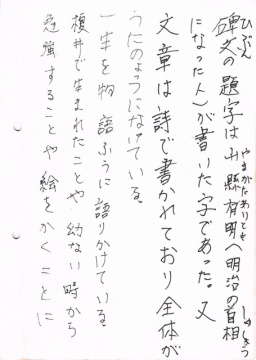 碑文の題字は山縣有朋(明治の首相
になった人)が書いた字であった。又
文章は詩で書かれており全体が
うたのようになっている。
一生を物語ふうに語りかけている。
榎井で生まれたことや幼ない時から
勉強することや絵をかくことに
ひぶん
やまがたありとも
しゅしょう